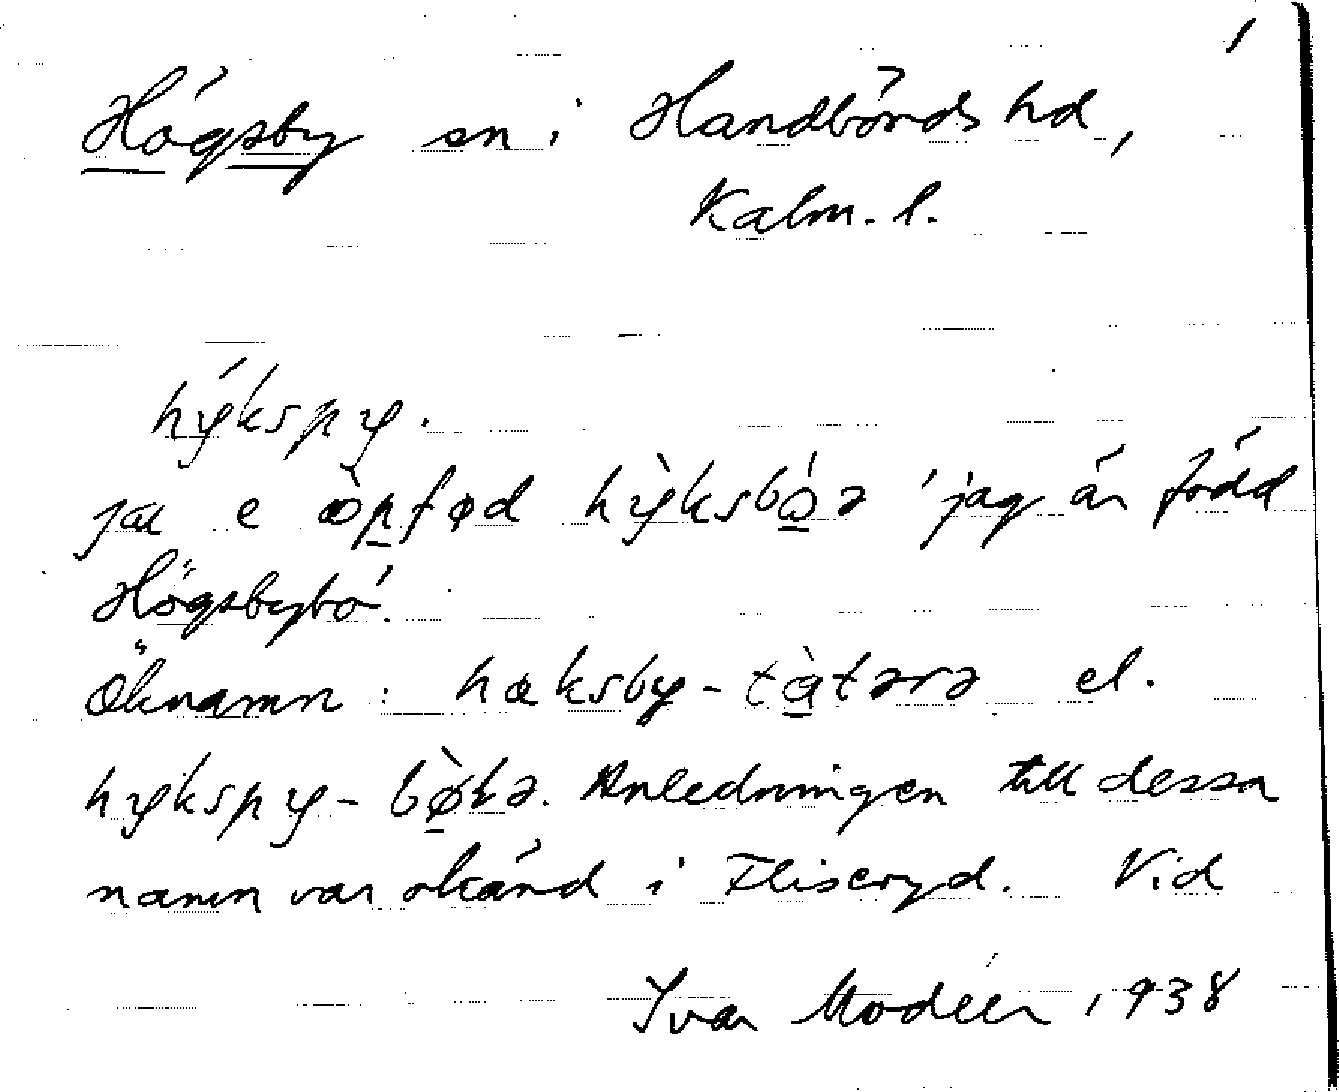 1
Högsby sn i Handbörds hd,
Kalm. l.
hýkspy.
ja e òpfød hỳksbó̱ə 'jag är född
Högsbybo'.
Öknamn: høksby-tà̱tərə el.
hykspy-bø̱̀kə. Anledningen till dessa
namn var okänd i Fliseryd. Vid
Ivar Modéer 1938